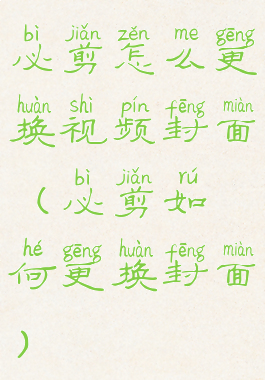 bì jiǎn zěn me gēng
必剪怎么更
huàn shì pín fēng miàn
换视频封面
bì jiǎn rú
(必剪如
hé gēng huàn fēng miàn
何更换封面
)